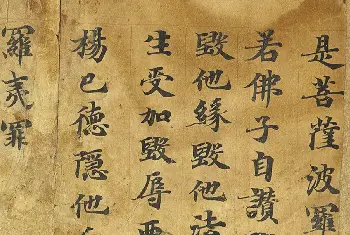 是菩薩波羅
若佛子自讚
毀他緣毀他法
生受加毀辱
楊已德隱他
羅夷罪